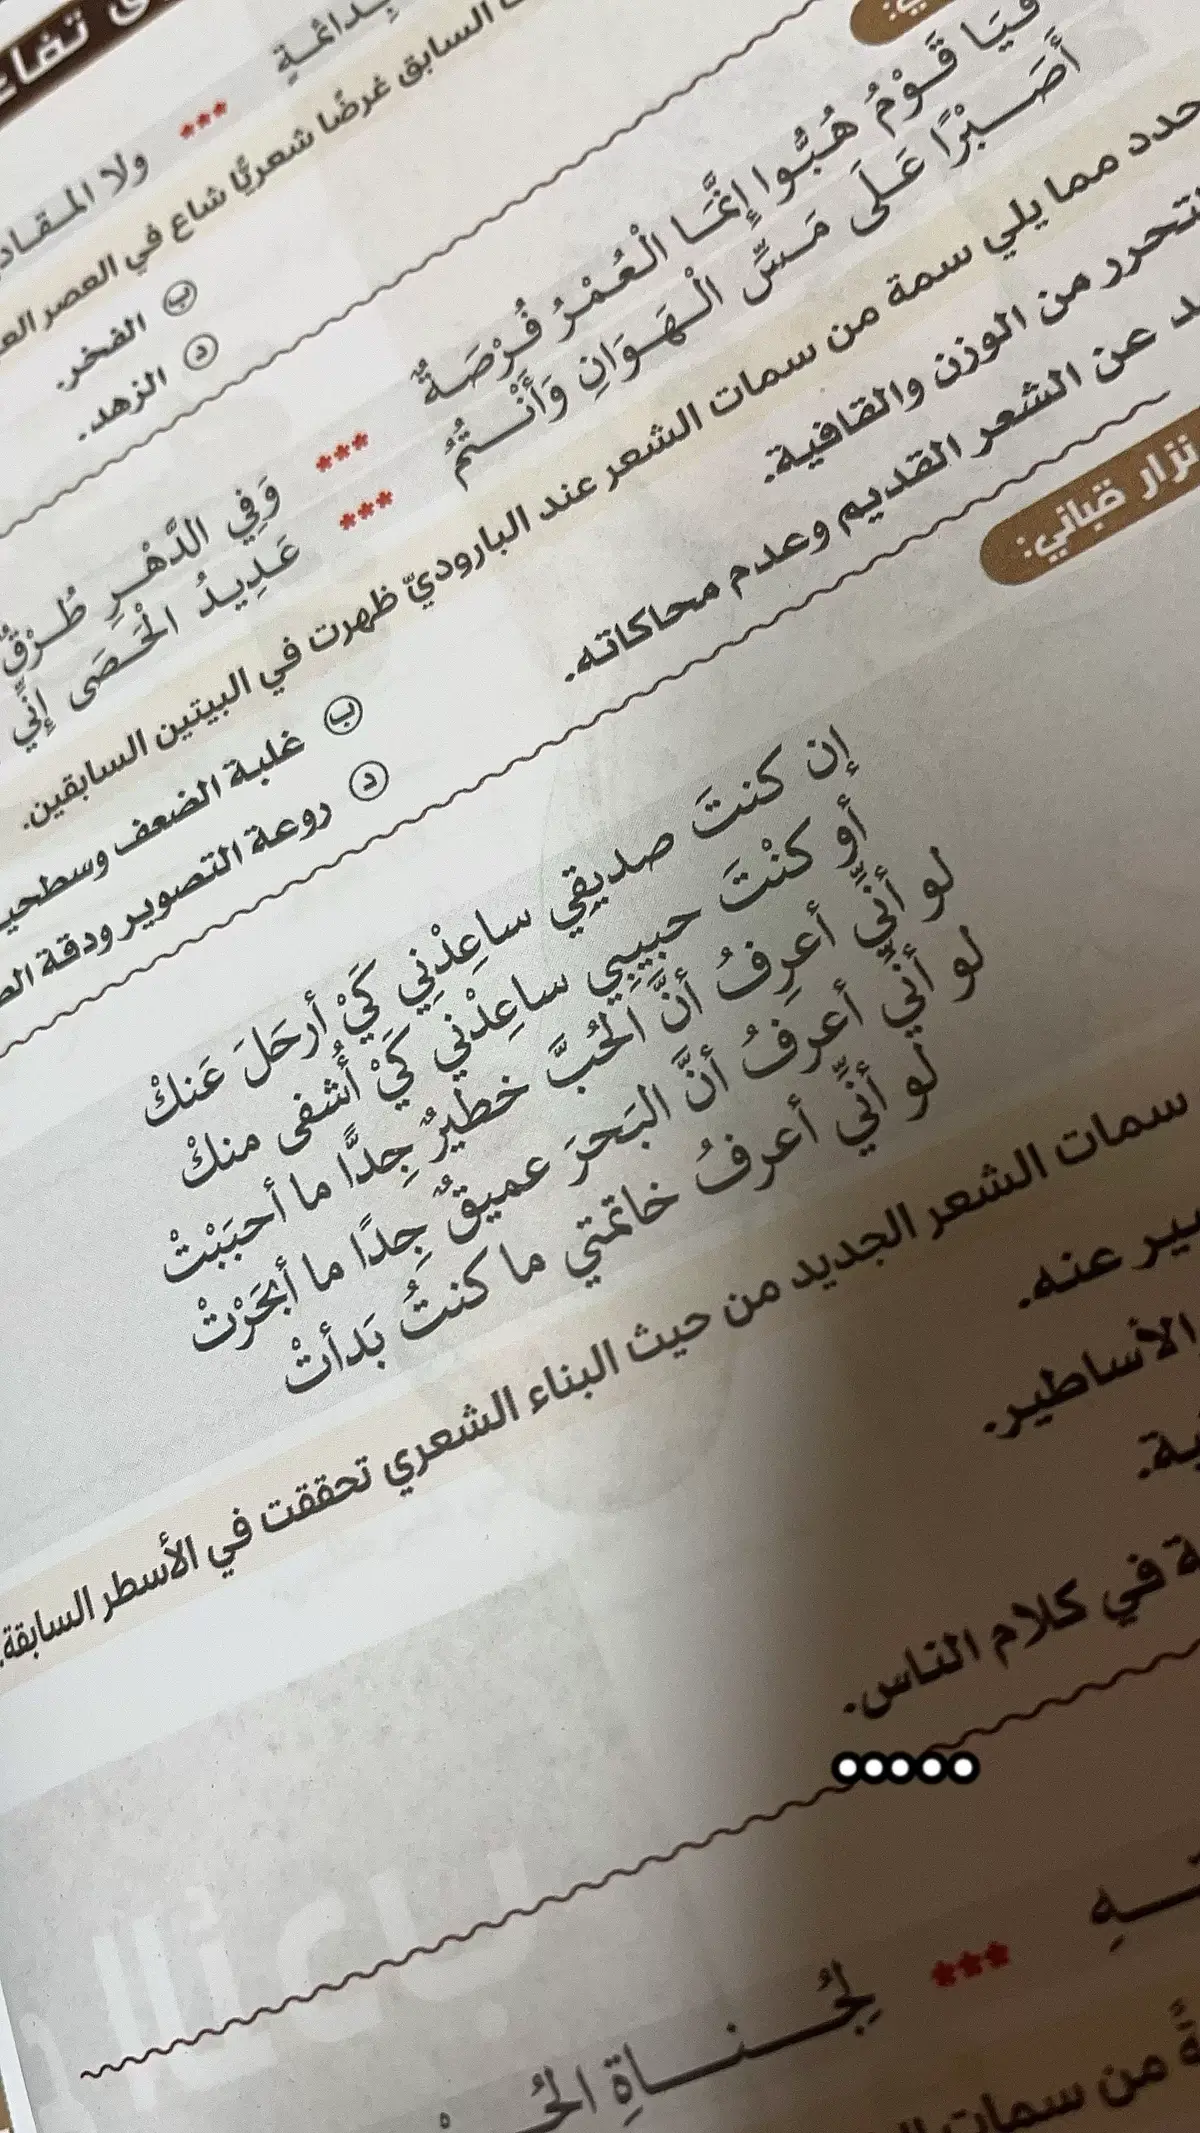 بدائمةٍ *** ولا المقاد
السابق غرضًا شعريًّا شاع في العصر
ب الفخر.
د الزهد.
فَيَا قَوْمُ هُبُّوا إِنَّمَا الْعُمْرُ فُرْصَةٌ *** وَفِي الدَّهْرِ طُرْقٌ
أَصَبْرًا عَلَى مَسِّ الْهَوَانِ وَأَنْتُمُ *** عَدِيدُ الْحَصَى إِنِّي
حدد مما يلي سمة من سمات الشعر عند الباروديّ ظهرت في البيتين السابقين.
لتحرر من الوزن والقافية.
ب غلبة الضعف وسطحي
د عن الشعر القديم وعدم محاكاته.
د روعة التصوير ودقة
نزار قباني:
إن كنتَ صديقِي ساعِدْنِي كَيْ أرحَلَ عَنكْ
أو كنْتَ حبيبِي ساعِدْني كَيْ أُشفى منكْ
لو أنِّي أعرِفُ أنَّ الحُبَّ خطيرٌ جِدًّا ما أحبَبْتْ
لو أنِّي أعرفُ أنَّ البَحرَ عميقٌ جِدًا ما أبحَرْتْ
لو أنِّي أعرفُ خاتمتي ما كنتُ بَدأتْ
سمات الشعر الجديد من حيث البناء الشعري تحققت في الأسطر السابقة.
بير عنه.
الأساطير.
ية.
ة في كلام الناس.
ـهِ *** لِجُنـاةِ
ةً من سمات